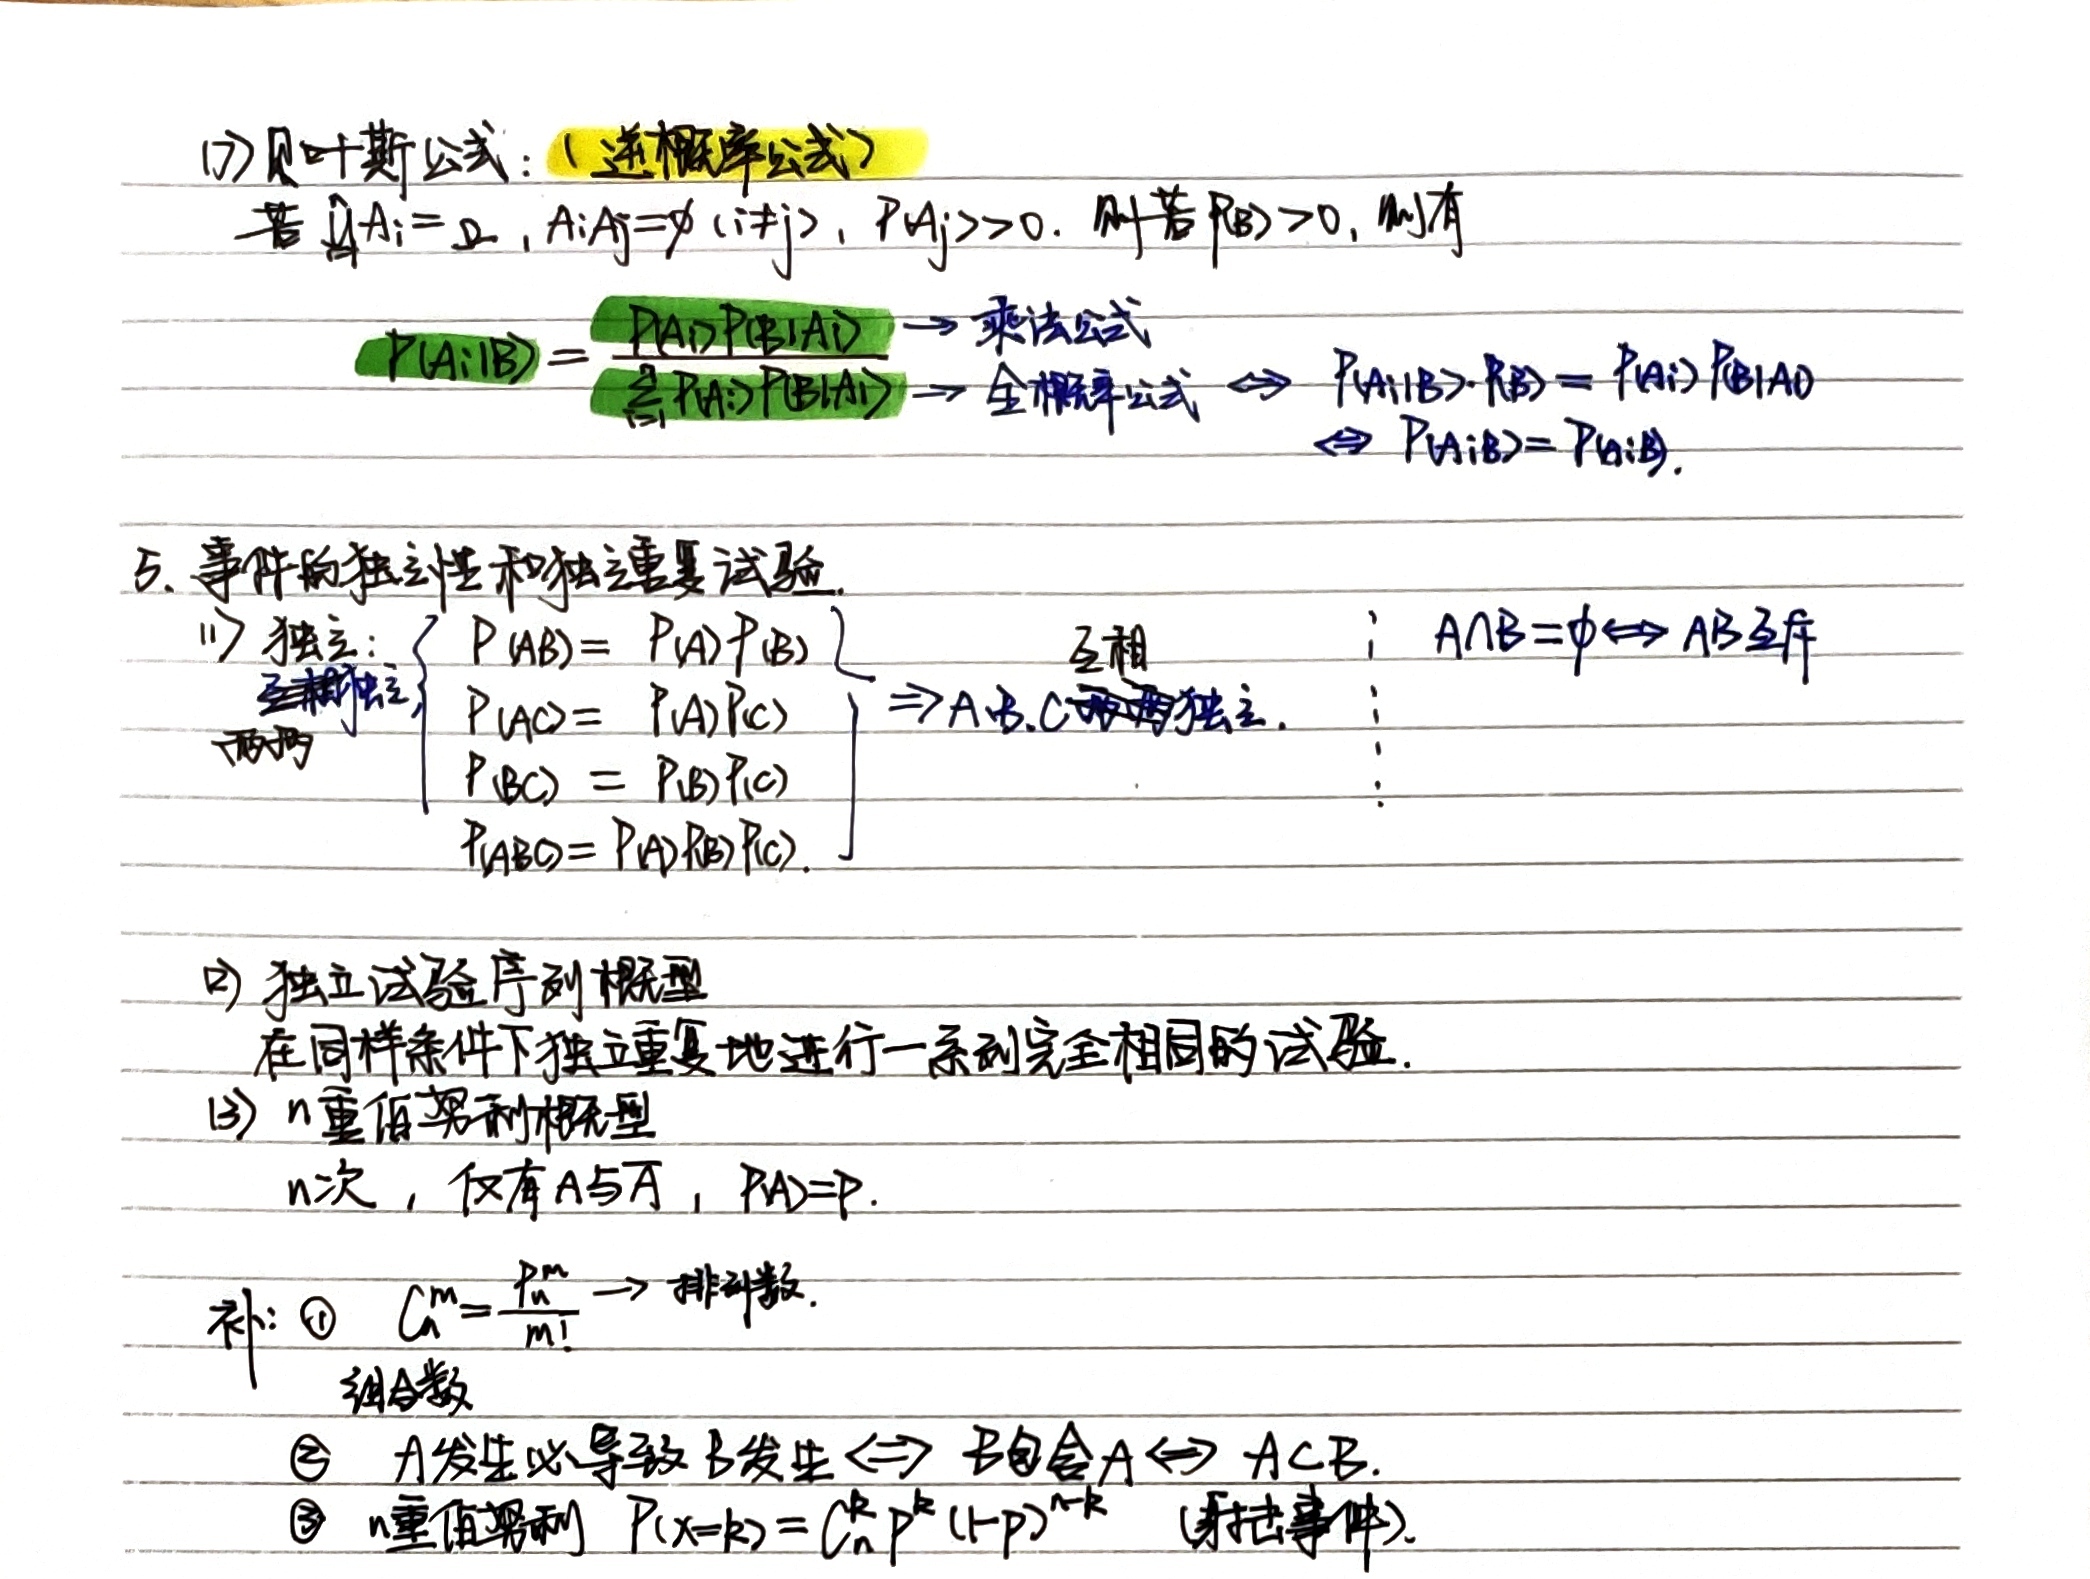 (7) 贝叶斯公式：（逆概率公式）
若 ⋃ᵢ₌₁ⁿ Aᵢ = Ω，AᵢAⱼ=φ (i≠j)，P(Aⱼ)>0. 则若P(B)>0，则有
P(Aᵢ|B) = P(Aᵢ)P(B|Aᵢ) / ∑ᵢ₌₁ⁿ P(Aᵢ)P(B|Aᵢ)
→ 乘法公式
→ 全概率公式 ⇔ P(Aᵢ|B)·P(B) = P(Aᵢ)P(B|Aᵢ)
⇔ P(AᵢB) = P(AᵢB).
5. 事件的独立性和独立重复试验.
(1) 独立： P(AB) = P(A)P(B) 互相 A∩B=φ ⇔ AB互斥
互相独立 P(AC) = P(A)P(C) ⇒ A.B.C 两两独立.
两两 P(BC) = P(B)P(C)
P(ABC) = P(A)P(B)P(C).
(2) 独立试验序列概型
在同样条件下独立重复地进行一系列完全相同的试验.
(3) n重伯努利概型
n次，仅有A与A̅，P(A)=P.
补: ① Cₙᵐ = Pₙᵐ / m! → 排列数.
组合数
② A发生必导致B发生 ⇔ B包含A ⇔ A⊂B.
③ n重伯努利 P(x=k) = Cₙᵏ pᵏ (1-p)ⁿ⁻ᵏ （射击事件）.